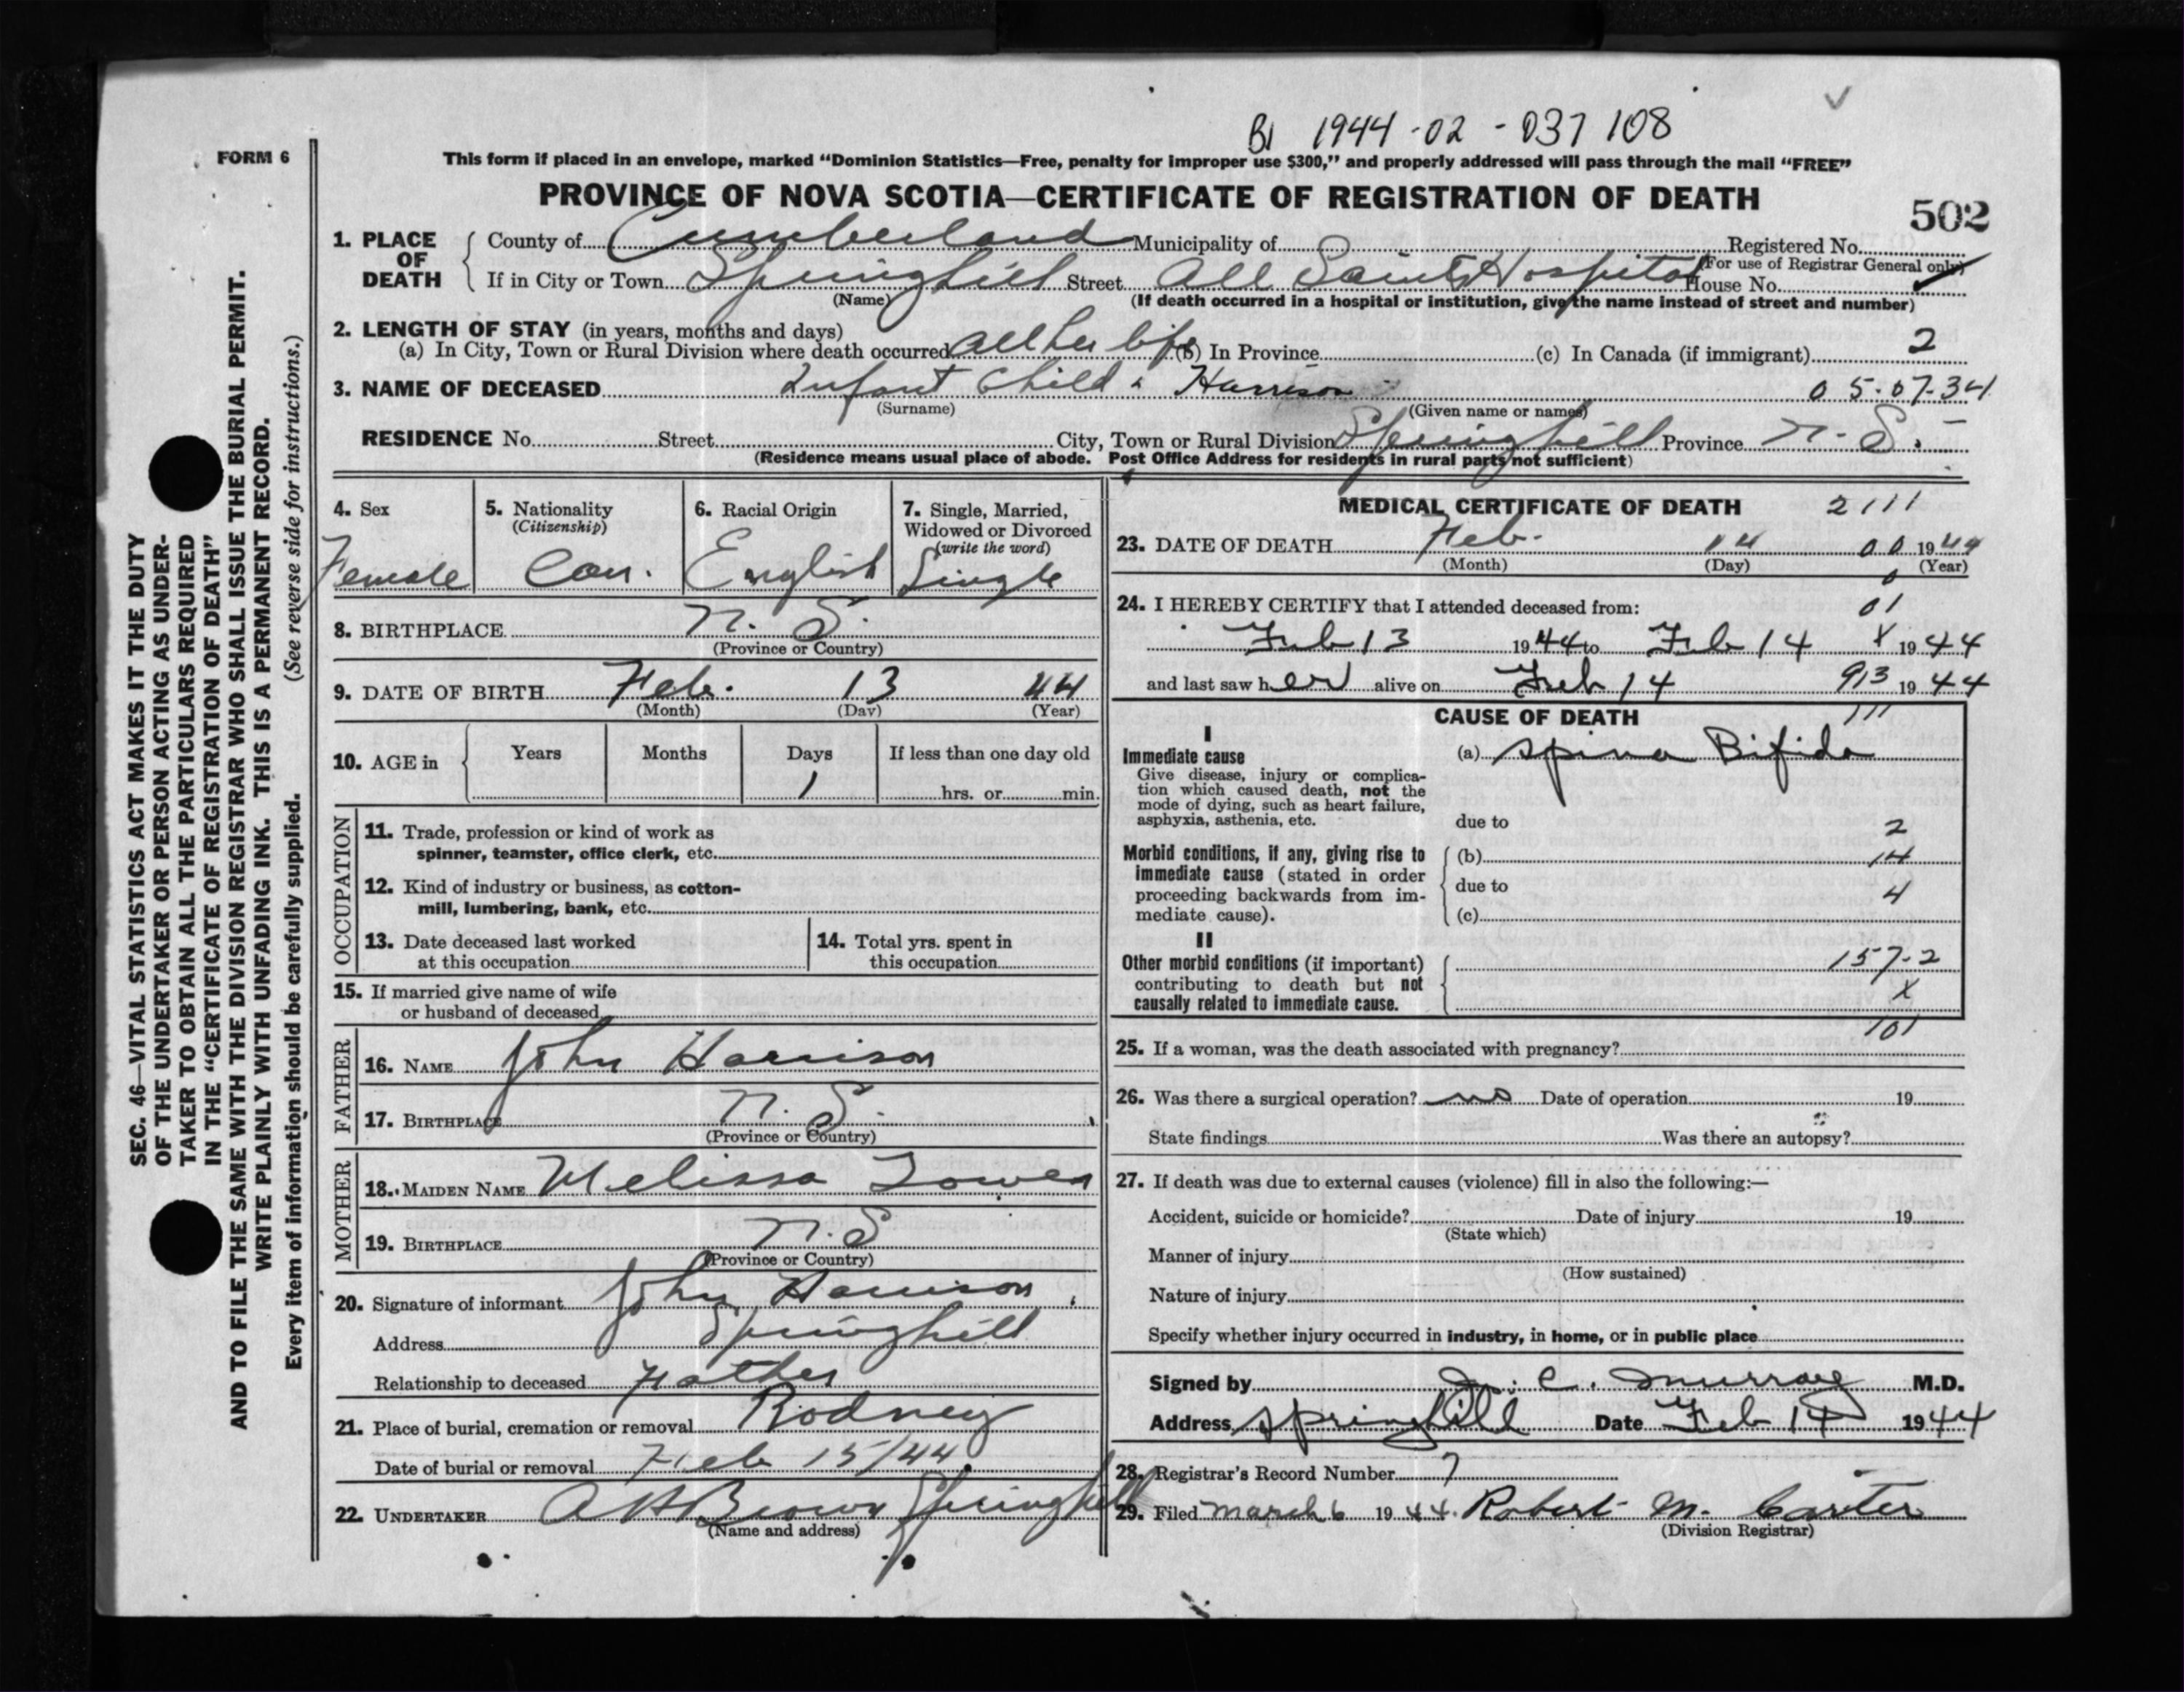 BI 1944-02-037108
FORM 6
This form if placed in an envelope, marked “Dominion Statistics—Free, penalty for improper use $300,” and properly addressed will pass through the mail “FREE”
PROVINCE OF NOVA SCOTIA—CERTIFICATE OF REGISTRATION OF DEATH
502
1. PLACE OF DEATH
County of Cumberland Municipality of Registered No.
(For use of Registrar General only)
If in City or Town Springhill Street All Saints Hospital House No.
(Name) (If death occurred in a hospital or institution, give the name instead of street and number)
2. LENGTH OF STAY (in years, months and days)
(a) In City, Town or Rural Division where death occurred all her life (b) In Province (c) In Canada (if immigrant) 2
3. NAME OF DECEASED Infant Child Harrison 05-07-34
(Surname) (Given name or names)
RESIDENCE No. Street City, Town or Rural Division Springhill Province N.S.
(Residence means usual place of abode. Post Office Address for residents in rural parts not sufficient)
4. Sex
Female
5. Nationality
(Citizenship)
Can.
6. Racial Origin
English
7. Single, Married,
Widowed or Divorced
(write the word)
Single
8. BIRTHPLACE N.S.
(Province or Country)
9. DATE OF BIRTH Feb. 13 44
(Month) (Day) (Year)
10. AGE in Years Months Days If less than one day old
1 hrs. or min.
OCCUPATION
11. Trade, profession or kind of work as
spinner, teamster, office clerk, etc.
12. Kind of industry or business, as cotton-
mill, lumbering, bank, etc.
13. Date deceased last worked
at this occupation
14. Total yrs. spent in
this occupation
15. If married give name of wife
or husband of deceased
FATHER
16. NAME John Harrison
17. BIRTHPLACE N.S.
(Province or Country)
MOTHER
18. MAIDEN NAME Melissa
19. BIRTHPLACE N.S
(Province or Country)
20. Signature of informant John Harrison
Address Springhill
Relationship to deceased Father
21. Place of burial, cremation or removal Rodney
Date of burial or removal Feb 15/44
22. UNDERTAKER A H Brown Springhill
(Name and address)
MEDICAL CERTIFICATE OF DEATH 2111
23. DATE OF DEATH Feb. 14 00 1944
(Month) (Day) (Year)
24. I HEREBY CERTIFY that I attended deceased from: 01
Feb 13 1944 to Feb 14 X 1944
and last saw her alive on Feb 14 913 1944
CAUSE OF DEATH 111
I
Immediate cause
Give disease, injury or complica-
tion which caused death, not the
mode of dying, such as heart failure,
asphyxia, asthenia, etc.
(a) Spina Bifida
due to
2
Morbid conditions, if any, giving rise to
immediate cause (stated in order
proceeding backwards from im-
mediate cause).
(b) 14
due to 4
(c)
II
Other morbid conditions (if important)
contributing to death but not
causally related to immediate cause.
157-2
X
101
25. If a woman, was the death associated with pregnancy?
26. Was there a surgical operation? no Date of operation 19
State findings Was there an autopsy?
27. If death was due to external causes (violence) fill in also the following:—
Accident, suicide or homicide? Date of injury 19
(State which)
Manner of injury
(How sustained)
Nature of injury
Specify whether injury occurred in industry, in home, or in public place
Signed by C. Murray M.D.
Address Springhill Date Feb 14 1944
28. Registrar's Record Number 7
29. Filed March 6 1944. Robert M. Carter
(Division Registrar)
SEC. 46—VITAL STATISTICS ACT MAKES IT THE DUTY
OF THE UNDERTAKER OR PERSON ACTING AS UNDER-
TAKER TO OBTAIN ALL THE PARTICULARS REQUIRED
IN THE “CERTIFICATE OF REGISTRATION OF DEATH”
AND TO FILE THE SAME WITH THE DIVISION REGISTRAR WHO SHALL ISSUE THE BURIAL PERMIT.
WRITE PLAINLY WITH UNFADING INK. THIS IS A PERMANENT RECORD.
Every item of information should be carefully supplied. (See reverse side for instructions.)